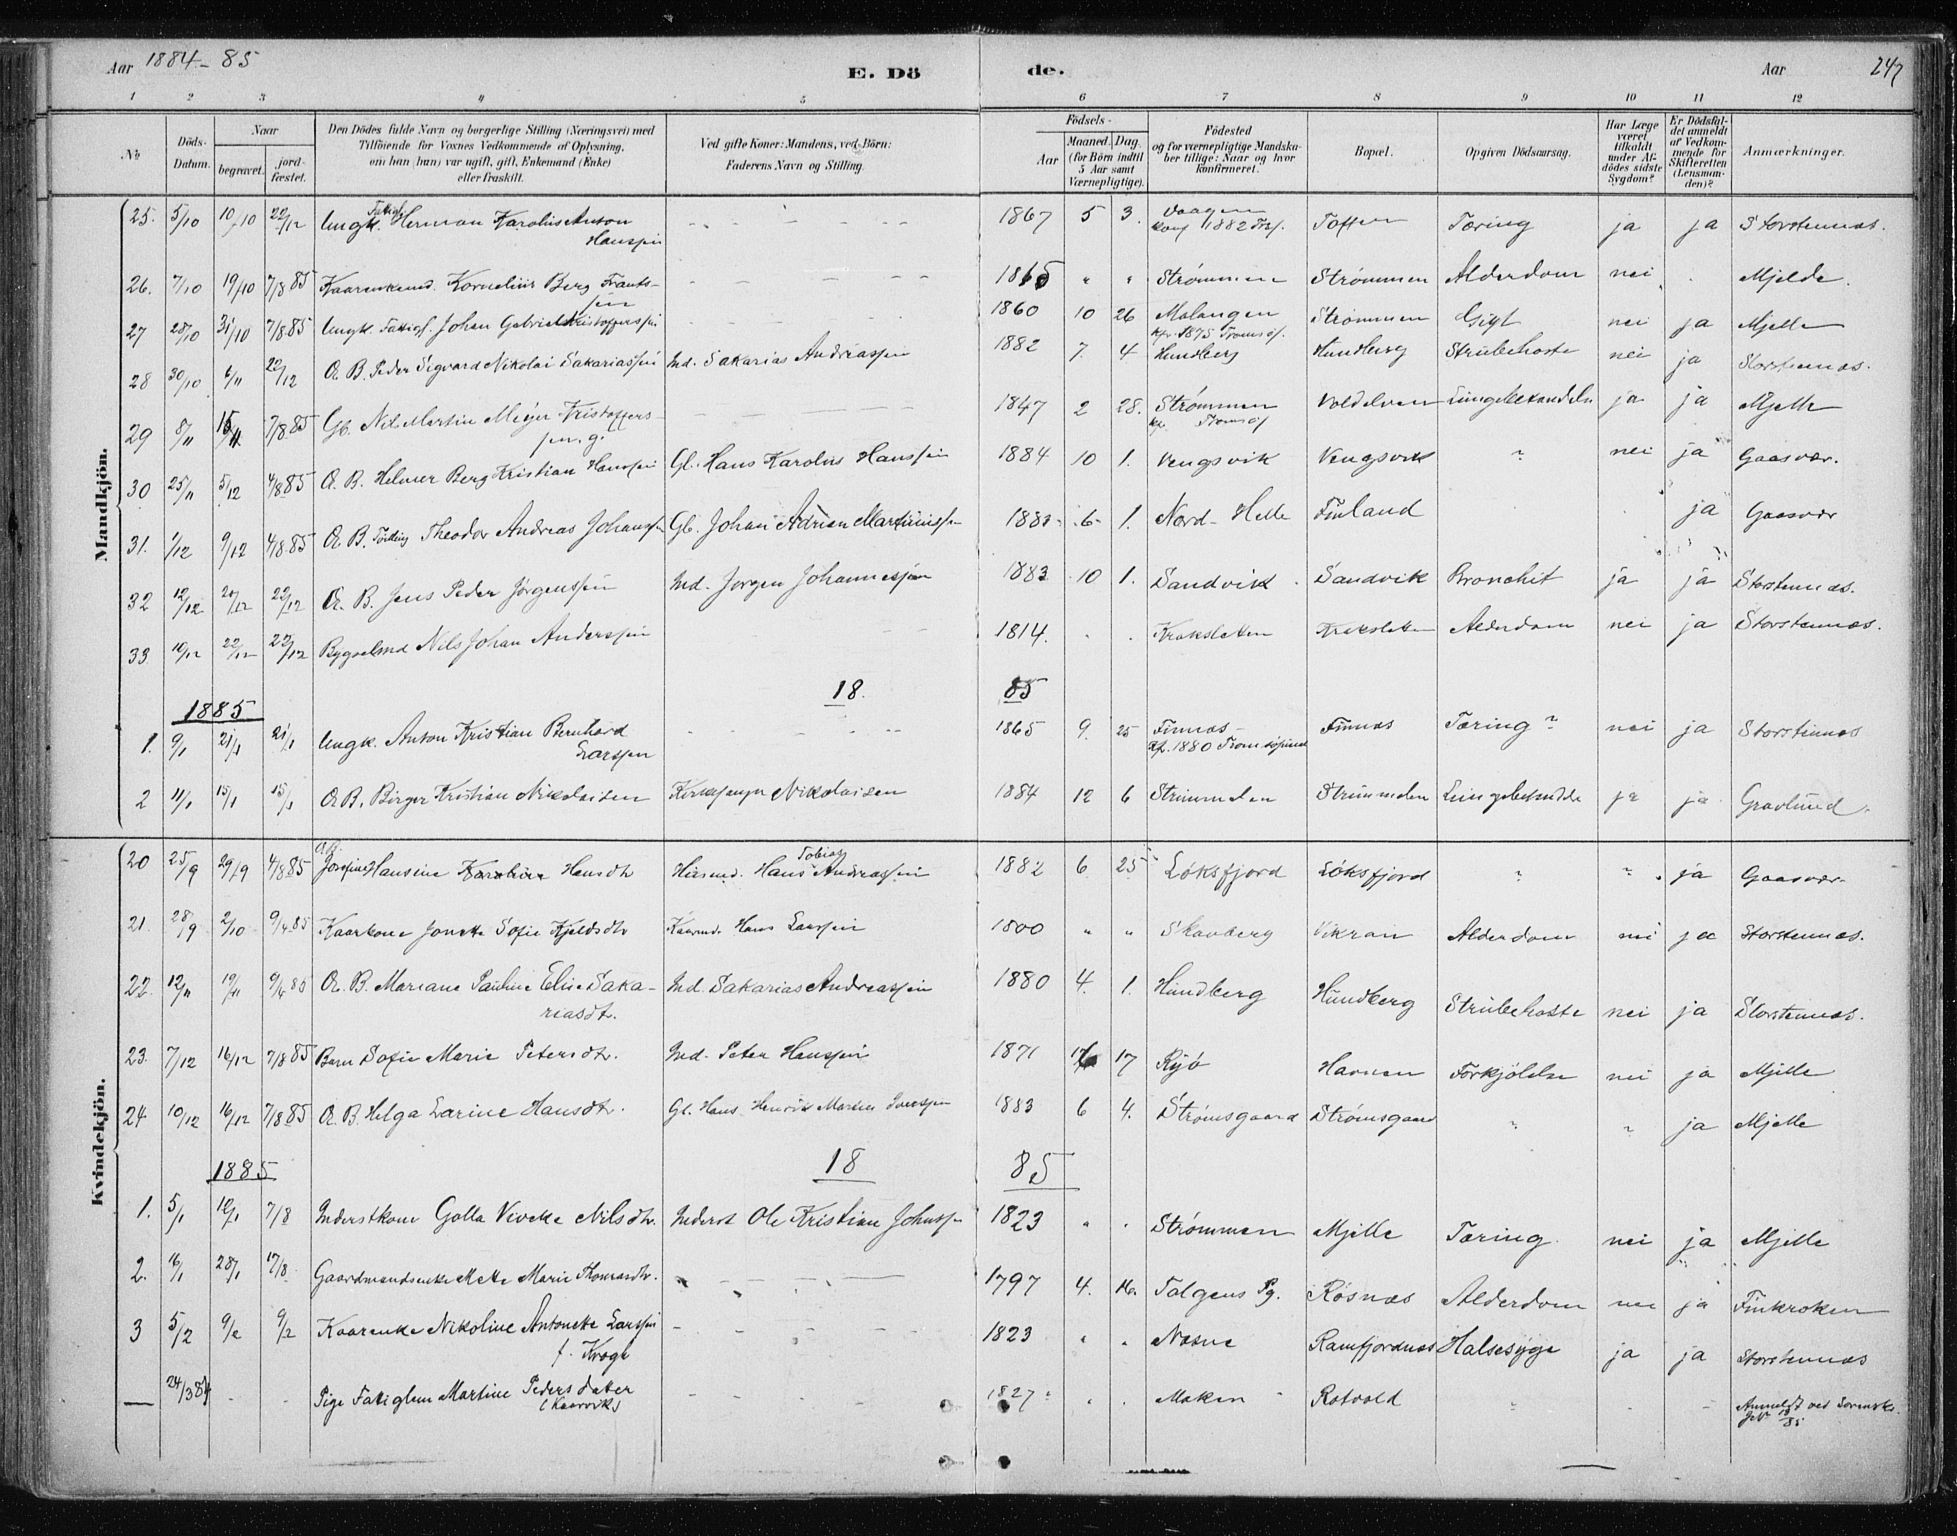 Aar 1884-85 E. Dö de. Aar 247
1 2 3 4 5 6 7 8 9 10 11 12
No. Döds-Datum. Naar begravet. jordfæstet. Den Dödes fulde Navn og borgerlige Stilling (Næringsvei) med Tilföiende for Voxnes Vedkommende af Oplysning, om han (hun) var ugift, gift, Enkemand (Enke) eller fraskilt. Ved gifte Koner: Mandens, ved Börn: Faderens Navn og Stilling. Födsels- Aar Maaned. Dag. (for Börn indtil 5 Aar samt Værnepligtige). Födested og for værnepligtige Mandskaber tillige: Naar og hvor konfirmeret. Bopæl. Opgiven Dödsaarsag. Har Læge været tilkaldt under Afdödes sidste Sygdom? Er Dödsfaldet anmeldt af Vedkommende for Skifteretten (Lensmanden)? Anmærkninger.
Mandkjön.
25. 5/10 10/10 22/12 Ungk. Fattigl. Herman Karolius Anton Hanssen 1867 5 3. Vaagen konf 1882 Trs. Toften Tæring ja ja Storstennæs.
26. 7/10 19/10 7/8 85 Kaarenkemd. Kornelius Berg Frantssen 1865 " " Strømmen Strømmen Alderdom nei Mjelde.
27 28/10 31/10 7/8 85 Ungk. Fattigl. Johan Gabriel Kristofferssen 1860 10 26 Malangen kfr. 1875 Tromsøs. Strømmen Gigt nei ja Mjelle
28 30/10 6/11 22/12 Æ. B. Peder Sigvard Nikolai Sakariassen Ind. Sakarias Andreassen 1882 7. 4 Hundberg Hundberg Strubehoste nei ja Storstennæs.
29 8/11 15/11 7/8 85 Gb. Nil Martin Meyer Kristofferssen. g. 1847 2 28. Strømmen kfr. Tromsøs Voldelven Lungebetændelse ja ja Mjelle
30 25/11 5/12 4/8 85 Æ. B. Helmer Berg Kristian Hanssen Gl. Hans Karolus Hanssen 1884 10 1. Vengsvik Vengsvik " nei ja Gaasvær.
31. 1/12 9/12 4/8 85 Æ. B. Tvilling Theodor Andreas Johanssen Gb. Johan Adrian Martinussen 1883 6 1. Nord-Helle Finland ja Gaasvær
32 12/12 20/12 22/12 Æ. B. Jens Peder Jørgenssen Ind. Jørgen Johannessen 1883 10 1. Sandvik Sandvik Bronchit ja ja Storstennæs.
33 10/12 22/12 22/12 Bygselmd Nils Johan Anderssen 1814. Kraksletten Kraksletten Alderdom nei ja Storstennæs.
1885 18 85
1. 9/1 21/1 21/1 Ungk. Anton Kristian Bernhard Larssen 1865 9. 25 Finnæs kfr. 1880 Tromsøsund Finnæs Tæring " nei ja Storstennæs
2 11/1 15/1 15/1 Æ B. Birger Kristian Nikolaisen Kirkesanger Nikolaisen 1884 12 6 Strimmelen Strimmelen Lungebetændelse ja ja Gravlund.
Kvindekjön.
20 25/9 29/9 4/8 85 Æ B. Josefine Hansine Karoline Hansdtr Husmd. Hans Tobias Andreassen 1882 6 25 Løksfjord Løksfjord " " ja Gaasvær
21. 28/9 2/10 9/4 85 Kaarkone Jonetta Sofie Kjeldsdtr Kaarmd. Hans Larssen 1800 " " Skavberg Vikran Alderdom nei ja Storstennæs.
22. 12/11 19/11 9/4 85 Æ. B. Mariane Pauline Elise Sakariasdtr. Ind. Sakarias Andreassen 1880 4. 1. Hundberg Hundberg Strubehoste nei ja Storstennæs.
23. 7/12 16/12 7/8 85 Barn Sofie Marie Petersdtr. Ind. Peter Hanssen 1871 17 Ryø Havnen Forkjølelse nei ja Mjelle
24 10/12 16/12 7/8 85 Æ. B. Helga Larine Hansdtr. Gl. Hans Henrik Martin 1883 6 4. Strømsgaard Strømsgaard " " ja Mjelle
1885 18 85
1. 5/1 12/1 7/8 Inderstkone Golla Viveka Nilsdtr. Inderst Ole Kristian Johnssen 1823 " " Strømmen Mjelle Tæring nei ja Mjelle
2. 16/1 28/1 17/8 Gaardmandsenke Mette Marie Thomasdtr. 1797 4. 16. Talgens Pg. Røsnæs Alderdom nei ja Finkroken
3 5/2 9/2 9/2 Kaarenke Nikoline Antonette Larssen f. Krogh 1823 " " Næsne Ramfjordnæs Halsesyge ja ja Storstennæs
— 24/3 84 Pige Fattiglem Martine Pedersdatter (Kaarvik) 1827 Maken Rotvold " Anmeldt ved Sorenskr.